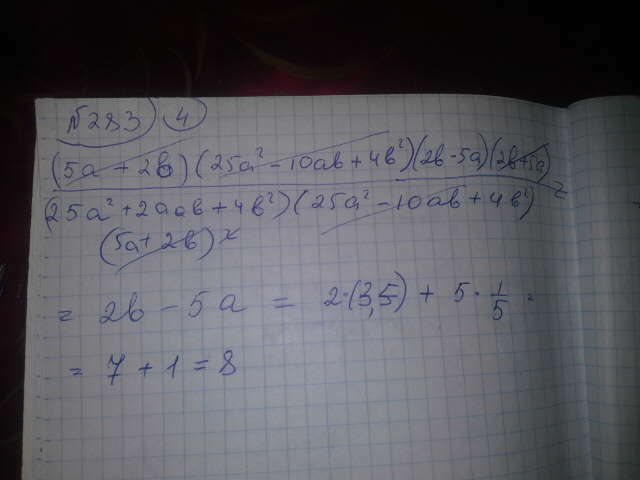 №283 4
(5a + 2b)(25a² - 10ab + 4b²)(2b - 5a)(2b + 5a)
(25a² + 20ab + 4b²)(25a² - 10ab + 4b²) =
(5a + 2b) x
= 2b - 5a = 2·(3,5) + 5 · 1/5 =
= 7 + 1 = 8